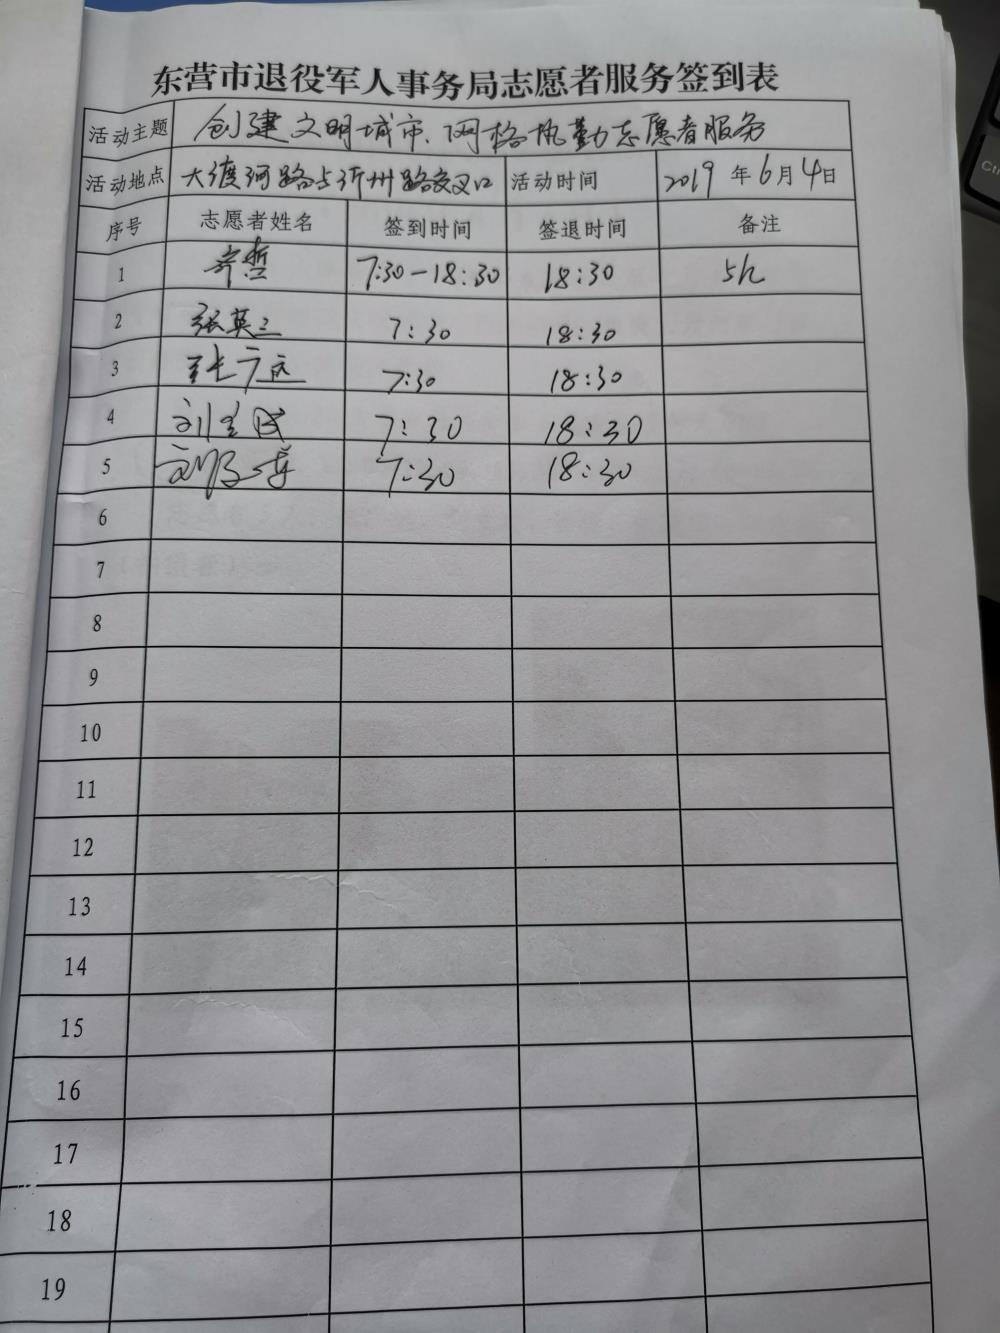 东营市退役军人事务局志愿者服务签到表
活动主题 创建文明城市、网格执勤志愿者服务
活动地点 大渡河路与沂州路交叉口 活动时间 2019年6月4日
序号 志愿者姓名 签到时间 签退时间 备注
1 7:30-18:30 18:30 5h
2 张英 7:30 18:30
3 张广远 7:30 18:30
4 刘 民 7:30 18:30
5 刘 7:30 18:30
6
7
8
9
10
11
12
13
14
15
16
17
18
19
Ctrl